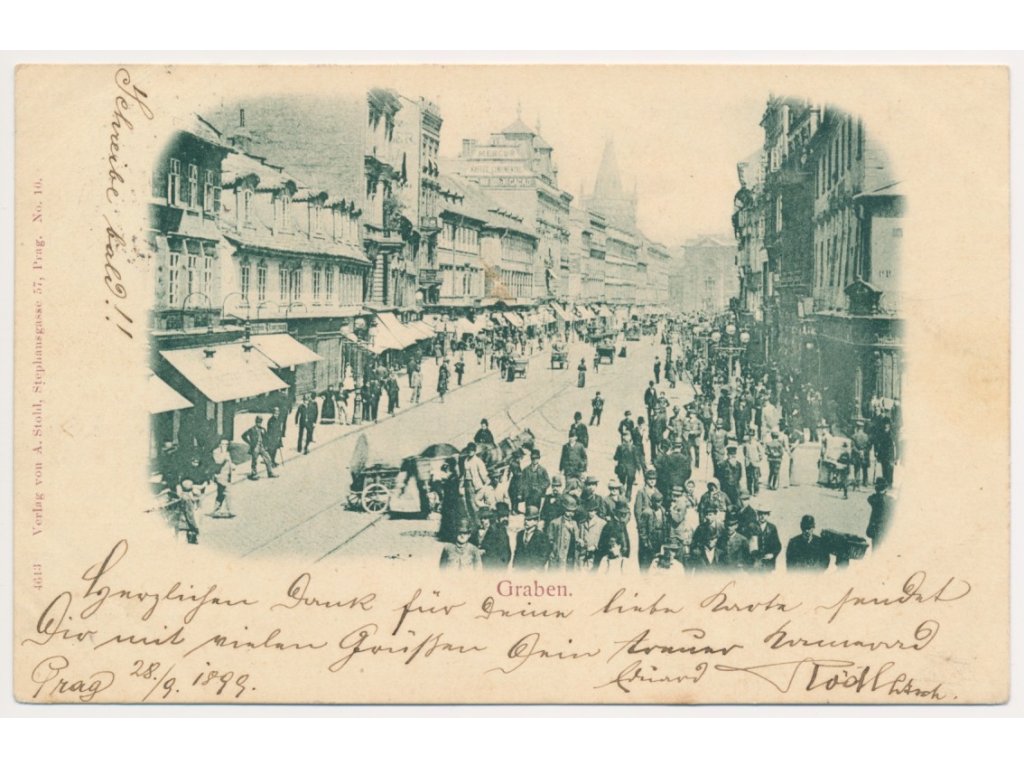 Schreibe bald!!
4613 Verlag von A. Stohl, Stephansgasse 57, Prag. No. 10.
MERCUR
Graben.
Herzlichen Dank für Deine liebe Karte sendet
Dir mit vielen Grüßen Dein treuer Kamerad
Prag 28./9. 1899. Eduard